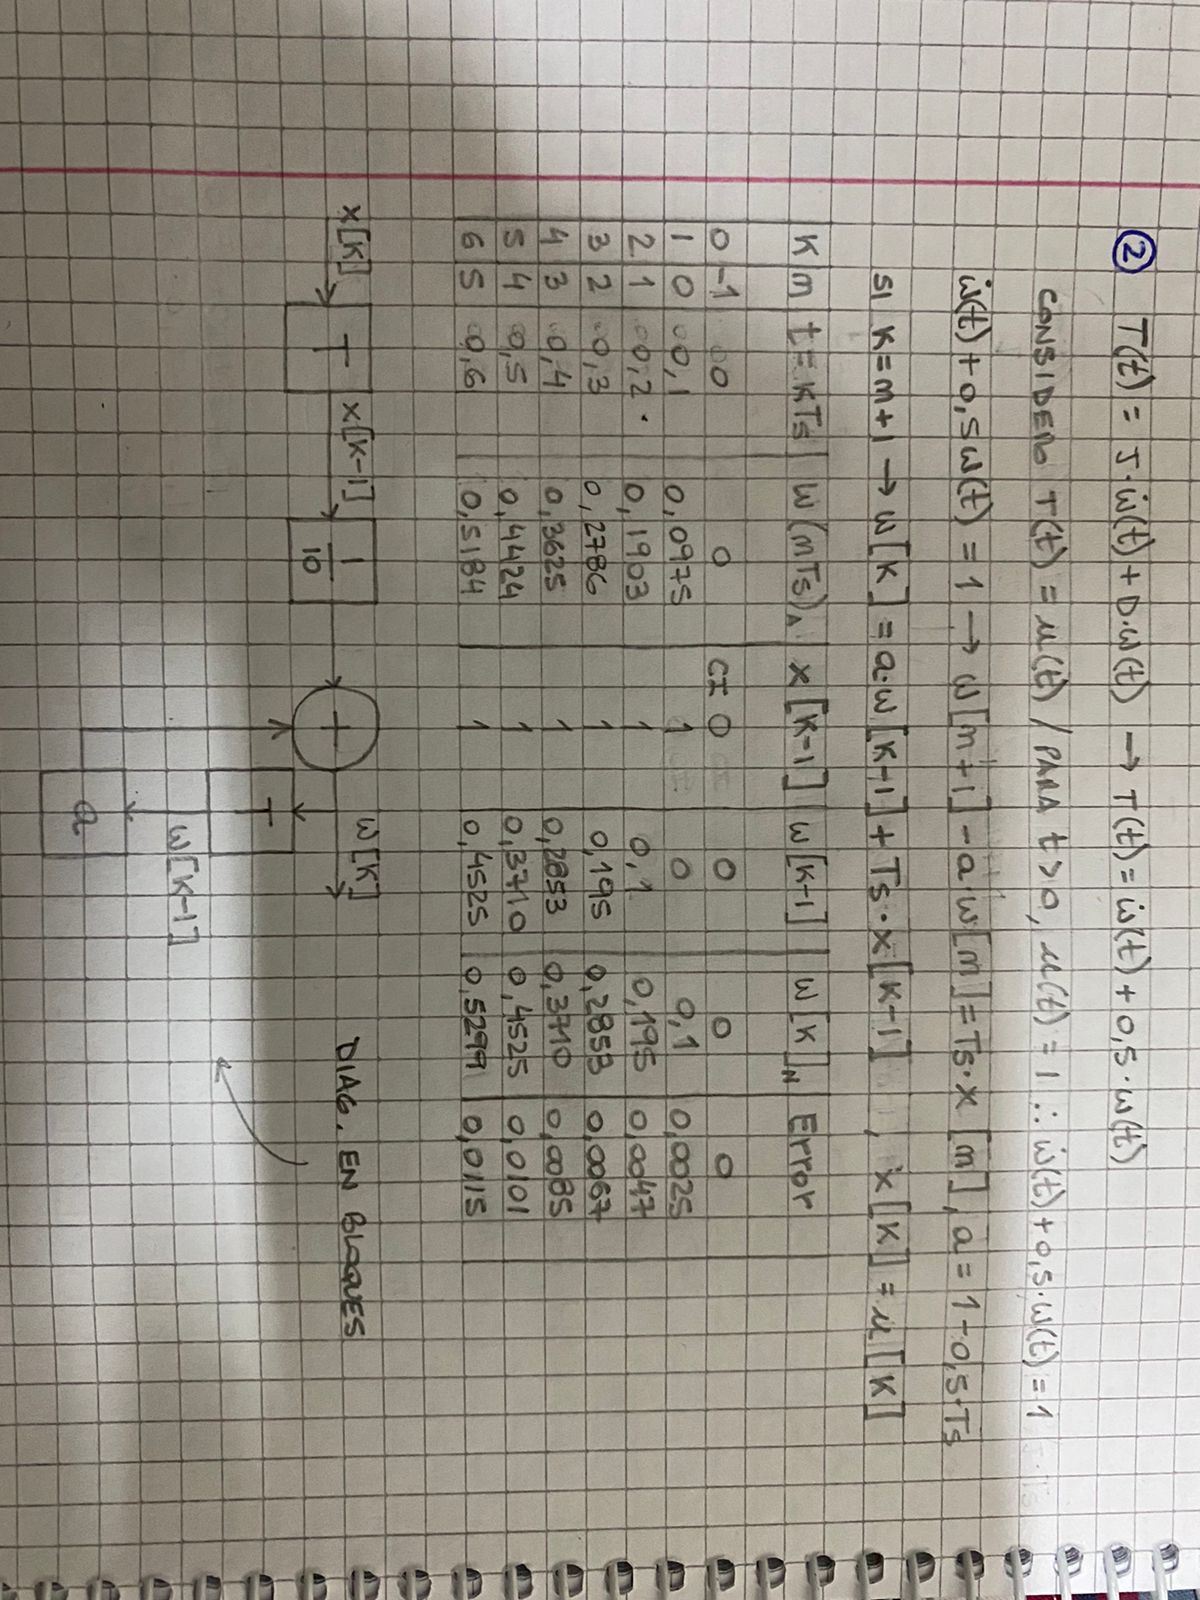 ② T(t) = J·ẇ(t) + D·w(t) → T(t) = ẇ(t) + 0,5·w(t)
CONSIDERO T(t) = μ(t) / PARA t>0, μ(t) = 1 ∴ ẇ(t) + 0,5·w(t) = 1
ẇ(t) + 0,5w(t) = 1 → w[m+1] - a·w[m] = Ts·x[m], a = 1-0,5·Ts
SI K=m+1 → w[K] = a·w[K-1] + Ts·x[K-1] , x[K] = μ[K]
K m t=KTs W(mTs)A x[K-1] w[K-1] W[K]N Error
0 -1 0 0 CI 0 0 0 0
1 0 0,1 0,0975 1 0 0,1 0,0025
2 1 0,2 0,1903 1 0,1 0,195 0,0047
3 2 0,3 0,2786 1 0,195 0,2853 0,0067
4 3 0,4 0,3625 1 0,2853 0,3710 0,0085
5 4 0,5 0,4424 1 0,3710 0,4525 0,0101
6 5 0,6 0,5184 1 0,4525 0,5299 0,0115
x[K] T x[K-1] 1/10 + w[K] DIAG. EN BLOQUES
T
w[K-1]
a